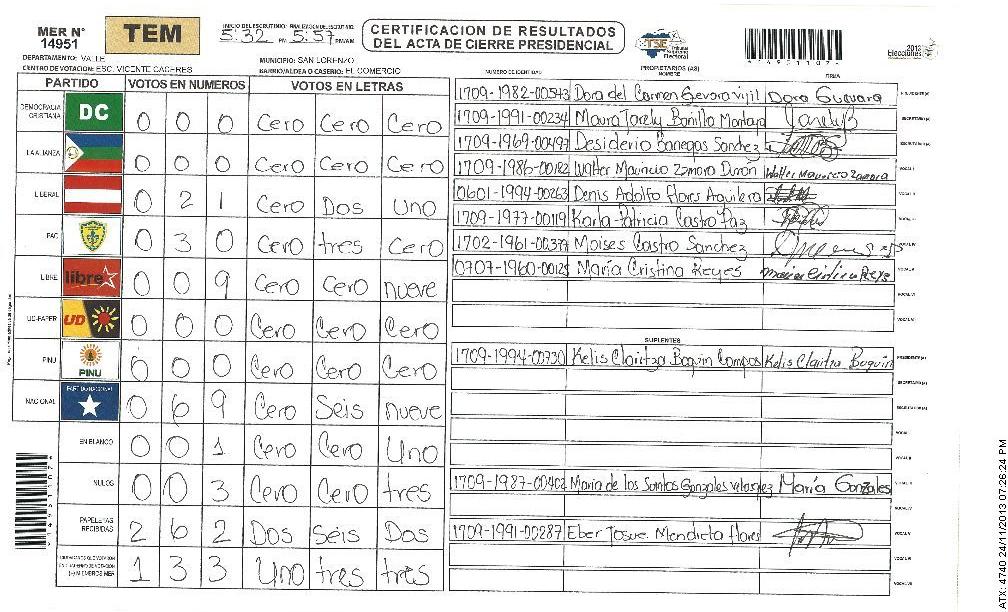 MER N° 14951
TEM
INICIO DEL ESCRUTINIO: 5:32 PM FINALIZACION DE ESCRUTINIO: 5:57 PM/AM
CERTIFICACION DE RESULTADOS
DEL ACTA DE CIERRE PRESIDENCIAL
TSE Tribunal Supremo Electoral
2013
Elecciones
DEPARTAMENTO: VALLE
MUNICIPIO: SAN LORENZO
CENTRO DE VOTACION: ESC. VICENTE CACERES
BARRIO/ALDEA O CASERIO: EL COMERCIO
PARTIDO VOTOS EN NUMEROS VOTOS EN LETRAS
DEMOCRACIA CRISTIANA DC 0 0 0 Cero Cero Cero
LA ALIANZA 0 0 0 Cero Cero Cero
LIBERAL 0 2 1 Cero Dos Uno
PAC 0 3 0 Cero tres Cero
LIBRE libre 0 0 9 Cero Cero nueve
UD-FAPER UD 0 0 0 Cero Cero Cero
PINU PINU 0 0 0 Cero Cero Cero
NACIONAL PARTIDO NACIONAL 0 6 9 Cero Seis nueve
EN BLANCO 0 0 1 Cero Cero Uno
NULOS 0 0 3 Cero Cero tres
PAPELETAS RECIBIDAS 2 6 2 Dos Seis Dos
1 3 3 Uno tres tres
NUMERO DE IDENTIDAD PROPIETARIOS (AS) NOMBRE FIRMA
1709-1982-00543 Dora del Carmen Gevara vijil Dora Guevara
1709-1991-00234 Maura Yarely Bonilla Montoya
SECRETARIO (A)
1709-1969-00497 Desiderio Banegas Sanchez
ESCRUTADOR (A)
1709-1986-00182 Walter Mauricio Zamora Duron Walter Mauricio Zamora
VOCAL I
0601-1994-00263 Denis Adolfo Flores Aguilera
1709-1977-00119 Karla Patricia Castro Paz
1702-1961-00379 Moises Castro Sanchez
0707-1960-00125 María Cristina Reyes Maria Cristina Reyes
SUPLENTES
1709-1994-00730 Kelis Claritza Boquin Campos Kelis Claritza Boquin
PRESIDENTE (A)
SECRETARIO (A)
ESCRUTADOR (A)
VOCAL I
1709-1987-00402 Maria de los Santos Gonzales velasquez María Gonzales
1709-1991-00287 Eber Josue Mendieta flores
ATX: 4740 24/11/2013 07:26:24 PM